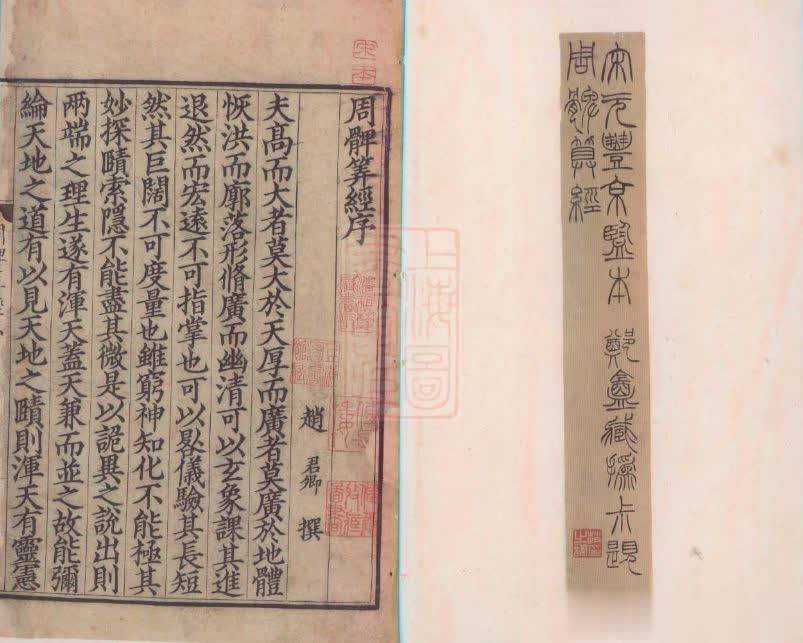 宋元豐京監本 鄭盦藏 撝尗題
周髀算經
宋本
周髀筭經序
趙君卿撰
夫髙而大者莫大於天厚而廣者莫廣於地體
恢洪而廓落形脩廣而幽清可以玄象課其進
退然而宏遠不可指掌也可以晷儀驗其長短
然其巨闊不可度量也雖窮神知化不能極其
妙探賾索隱不能盡其微是以詭異之說出則
兩端之理生遂有渾天蓋天兼而並之故能彌
綸天地之道有以見天地之賾則渾天有靈憲
上海圖